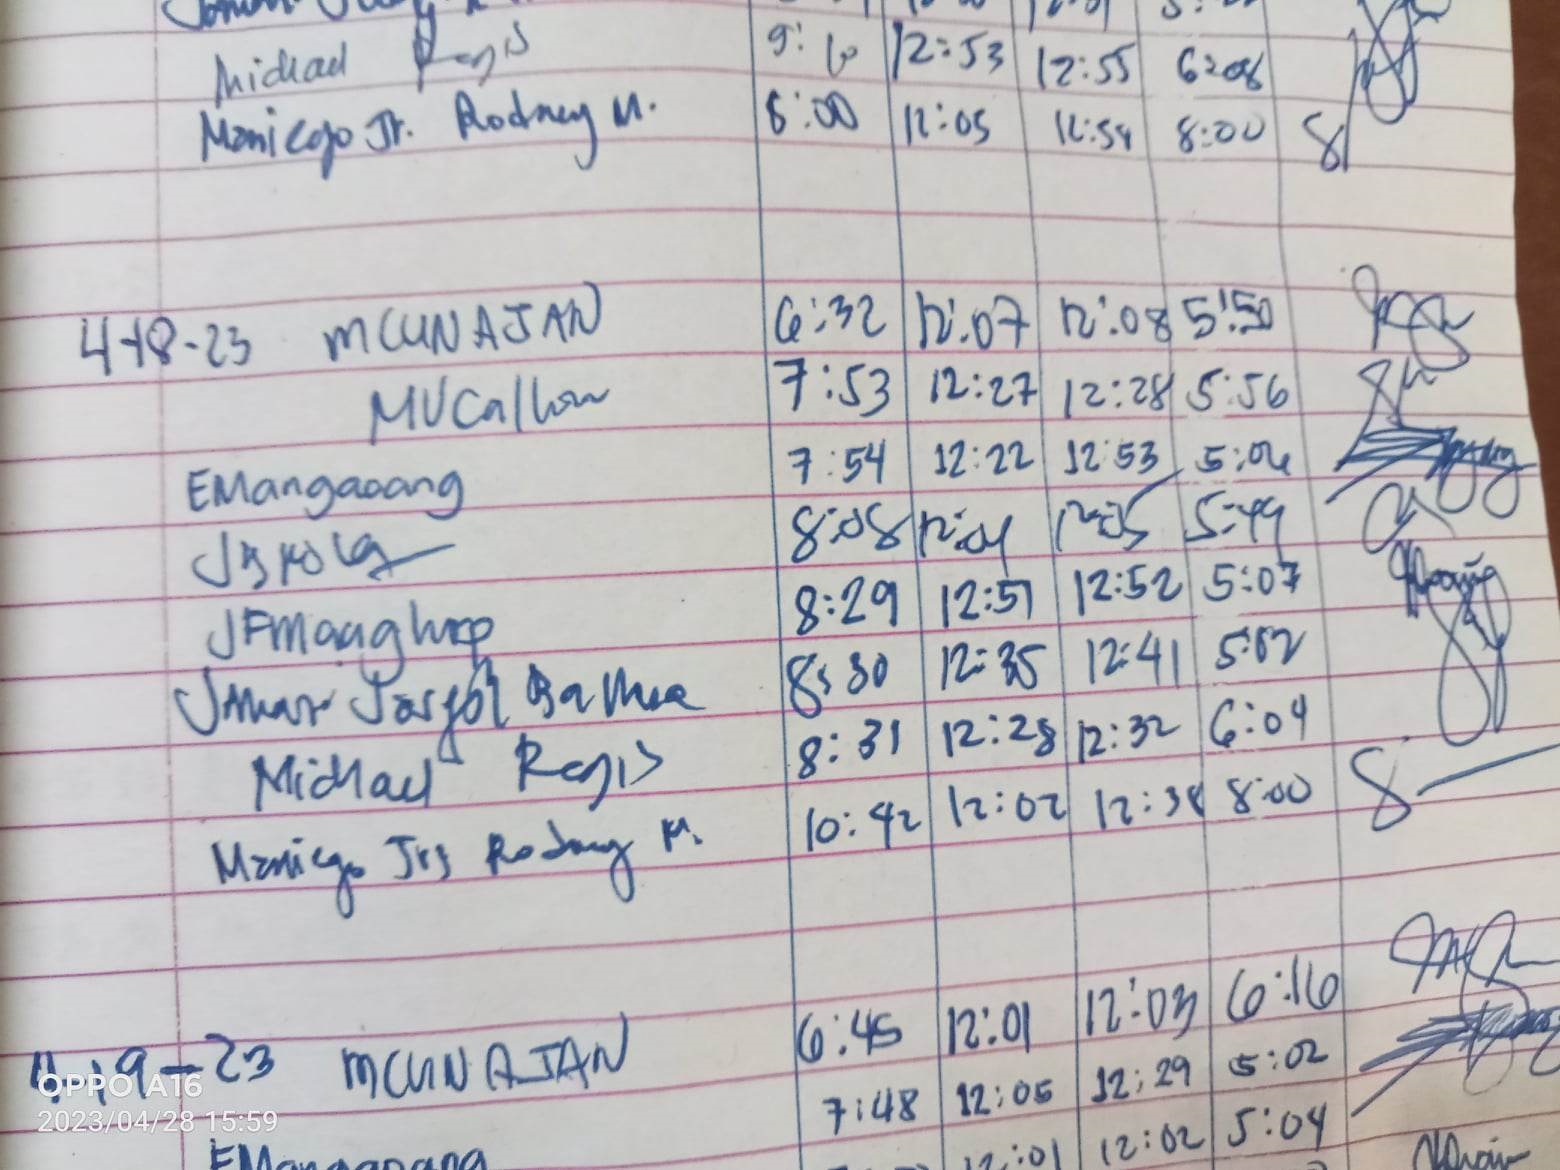 Michael Regis 9:10 12:53 12:55 6:08
Manicgo Jr. Rodney M. 8:00 12:05 12:54 8:00
4-18-23 MCUNAJAN 6:32 12:07 12:08 5:50
MVCallow 7:53 12:27 12:28 5:56
EMangaoang 7:54 12:22 12:53 5:02
8:08 12:01 12:05 5:49
JFMaaghop 8:29 12:51 12:52 5:07
8:30 12:35 12:41 5:02
Michael Regis 8:31 12:28 12:32 6:04
Manicgo Jr Rodney M. 10:42 12:02 12:38 8:00
4-19-23 MCUNAJAN 6:45 12:01 12:03 6:16
EMangaoang 7:48 12:05 12:29 5:02
12:01 12:02 5:04
OPPO A16
2023/04/28 15:59